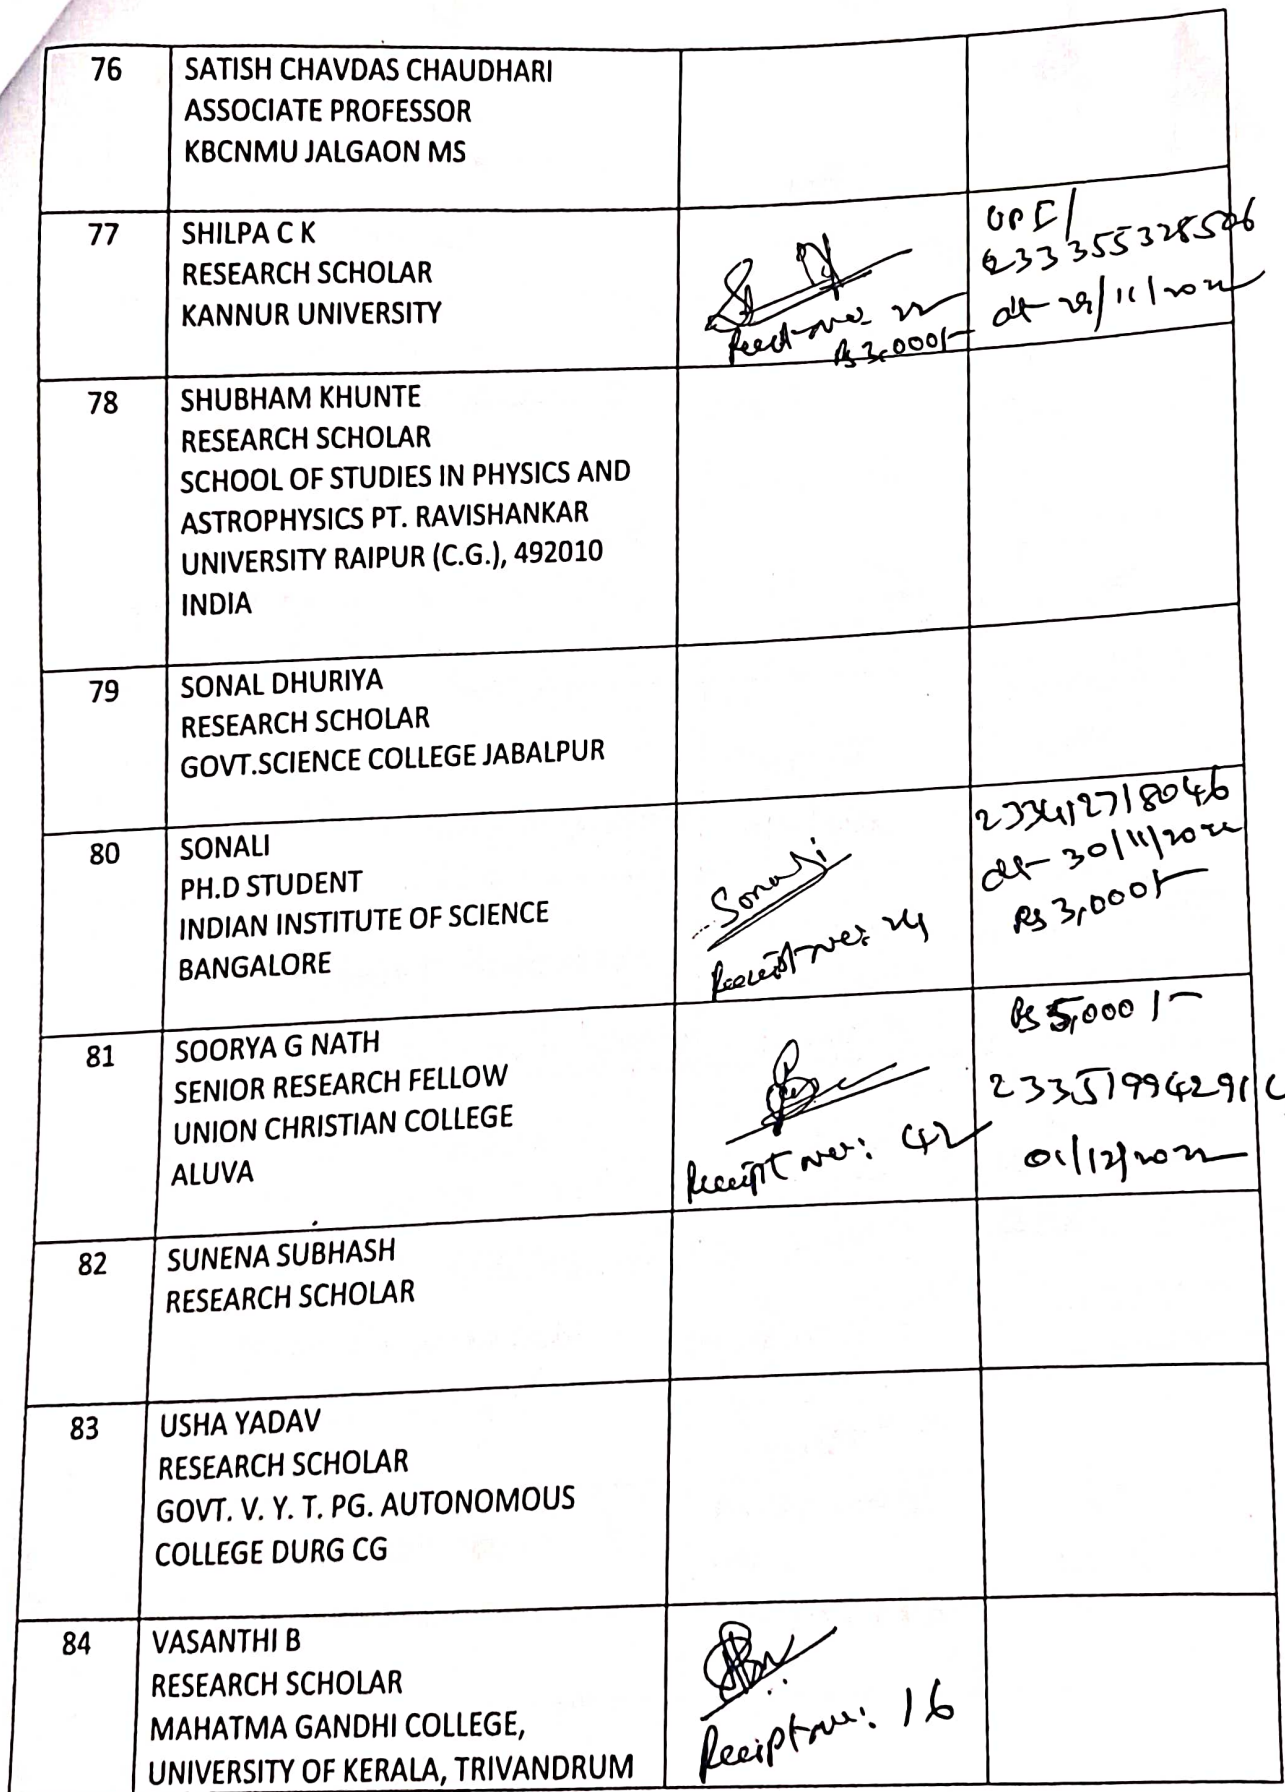 76
SATISH CHAVDAS CHAUDHARI
ASSOCIATE PROFESSOR
KBCNMU JALGAON MS
77
SHILPA C K
RESEARCH SCHOLAR
KANNUR UNIVERSITY
Rs 3,000/-
UPI/
78
SHUBHAM KHUNTE
RESEARCH SCHOLAR
SCHOOL OF STUDIES IN PHYSICS AND
ASTROPHYSICS PT. RAVISHANKAR
UNIVERSITY RAIPUR (C.G.), 492010
INDIA
79
SONAL DHURIYA
RESEARCH SCHOLAR
GOVT.SCIENCE COLLEGE JABALPUR
80
SONALI
PH.D STUDENT
INDIAN INSTITUTE OF SCIENCE
BANGALORE
Sonali
Receipt no: 24
233412718046
dt- 30/11/2022
Rs 3,000/-
81
SOORYA G NATH
SENIOR RESEARCH FELLOW
UNION CHRISTIAN COLLEGE
ALUVA
Receipt no: 42
Rs 5,000/-
01/12/2022
82
SUNENA SUBHASH
RESEARCH SCHOLAR
83
USHA YADAV
RESEARCH SCHOLAR
GOVT. V. Y. T. PG. AUTONOMOUS
COLLEGE DURG CG
84
VASANTHI B
RESEARCH SCHOLAR
MAHATMA GANDHI COLLEGE,
UNIVERSITY OF KERALA, TRIVANDRUM
Receipt no: 16